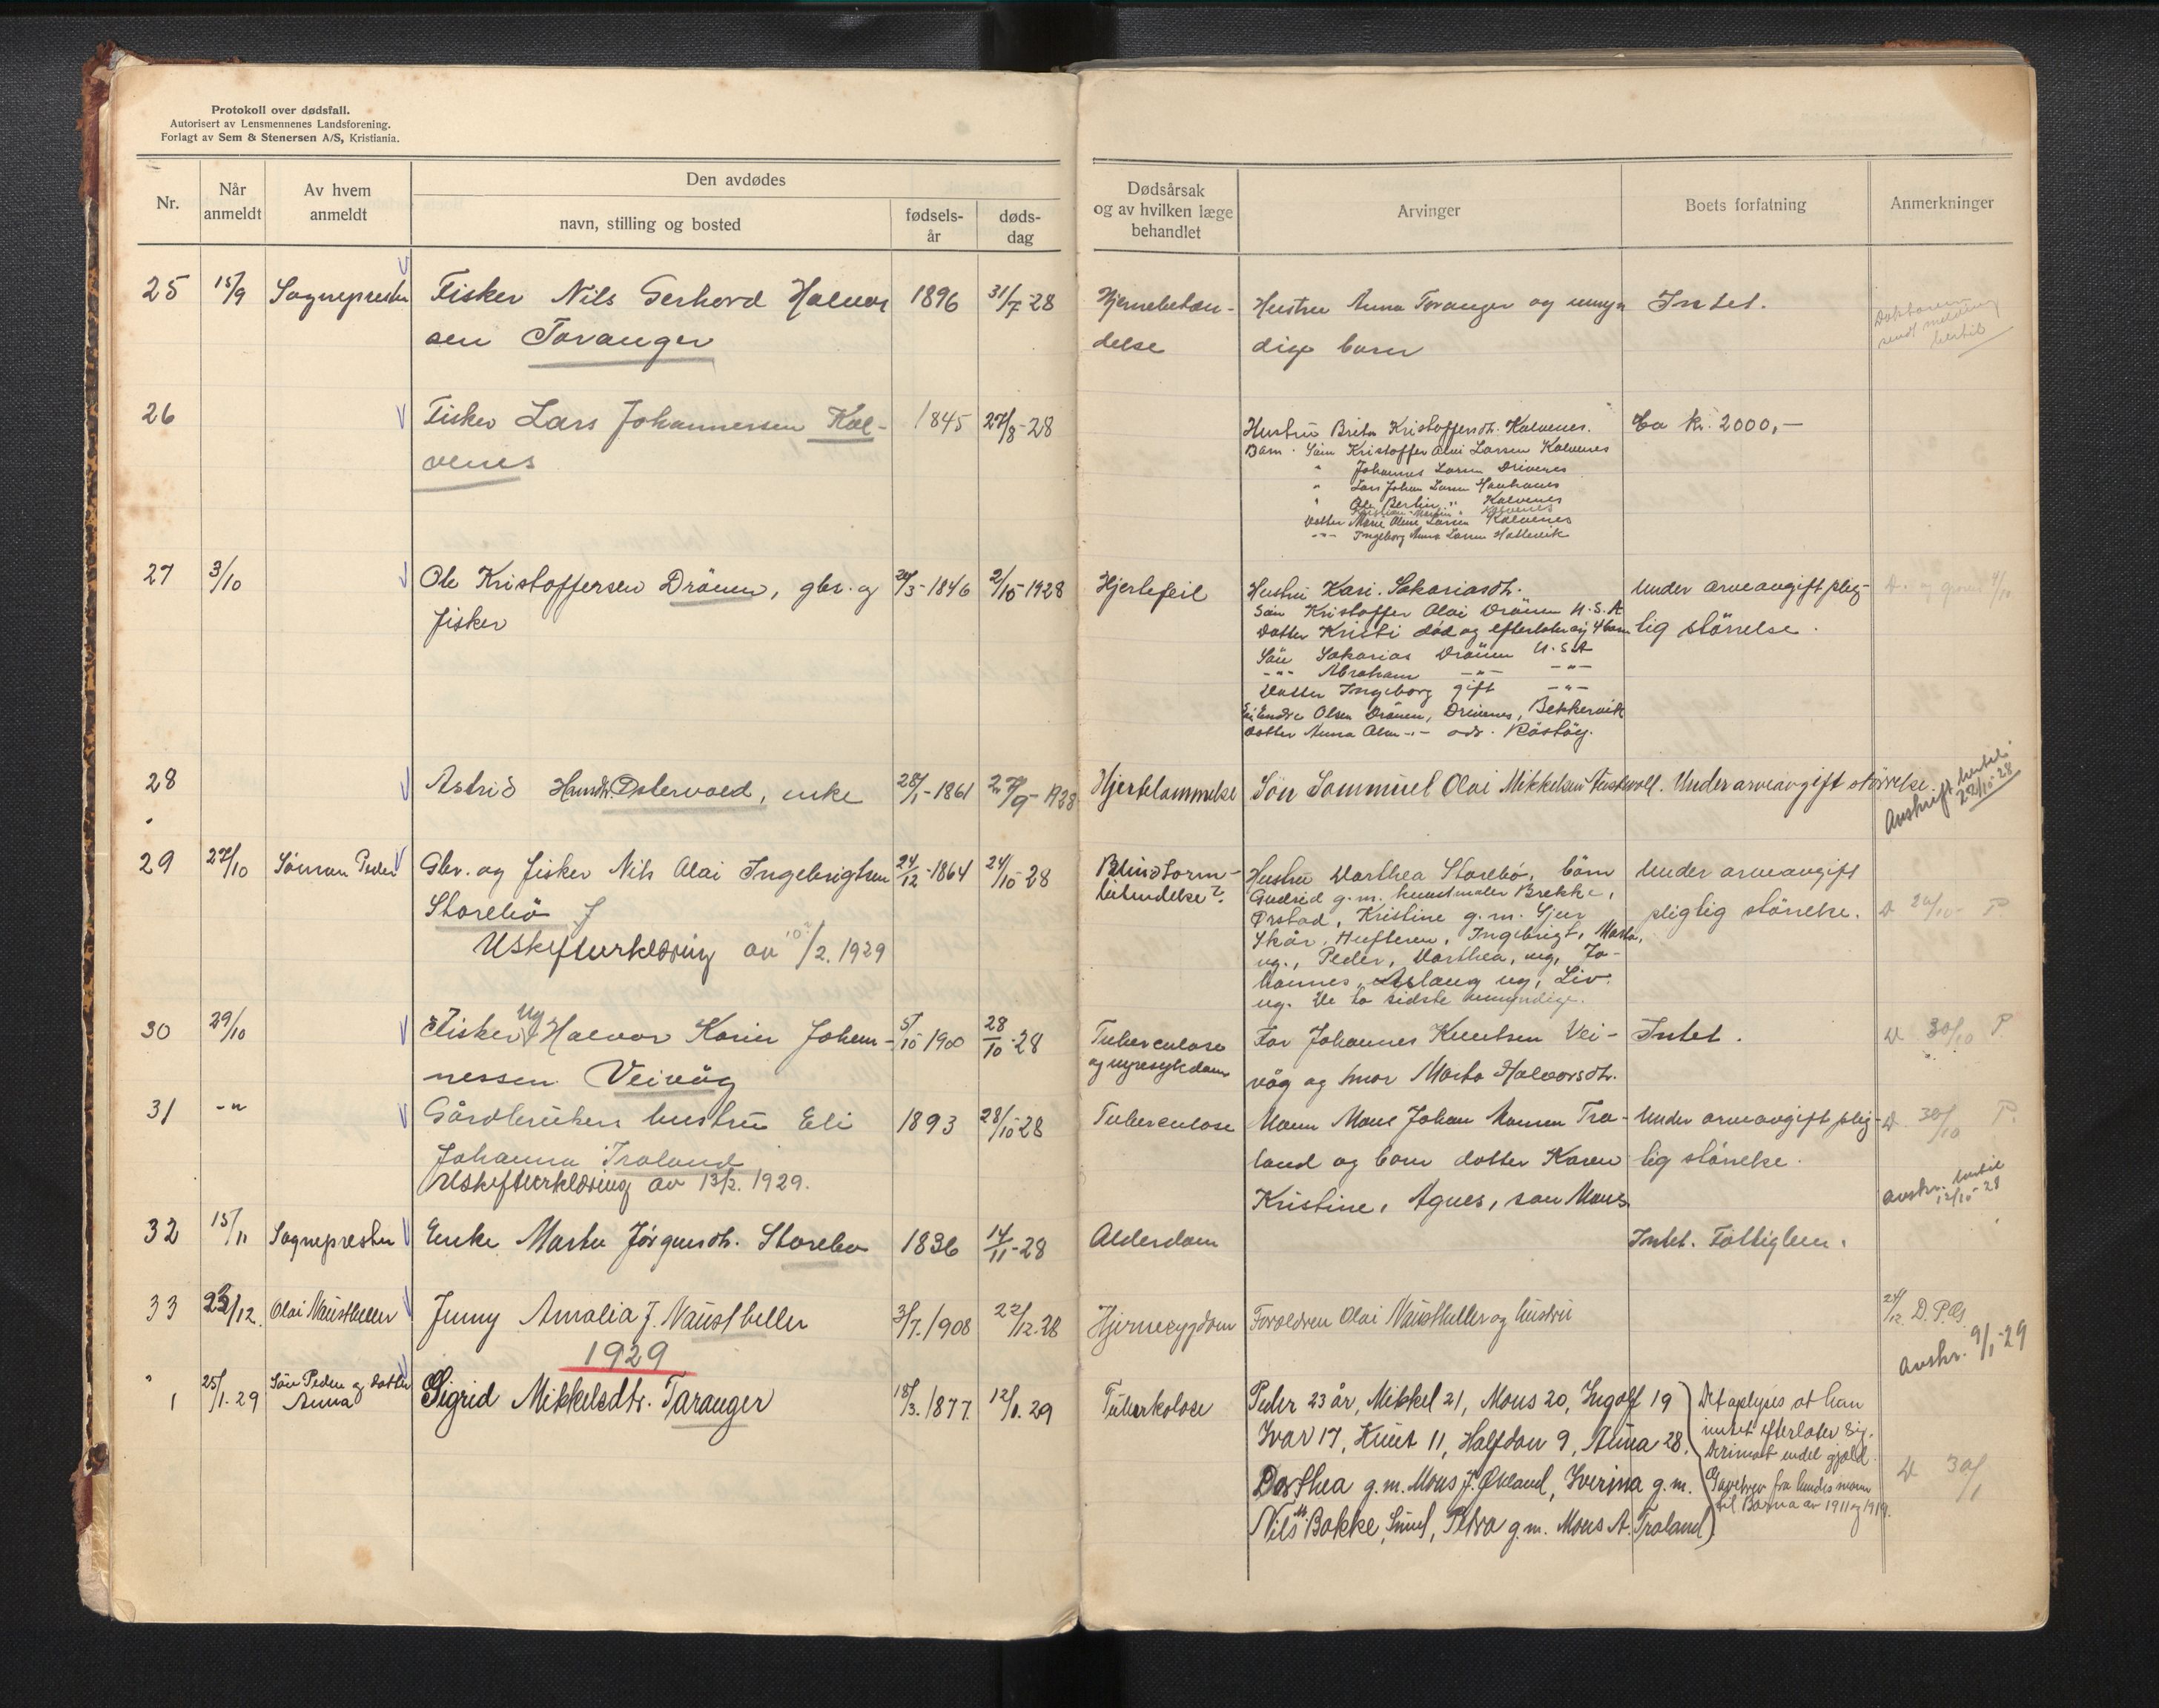 Protokoll over dødsfall.
Autorisert av Lensmennenes Landsforening.
Forlagt av Sem & Stenersen A/S, Kristiania.
Nr.
Når anmeldt
Av hvem anmeldt
Den avdødes
navn, stilling og bosted
fødsels-år
døds-dag
Dødsårsak og av hvilken læge behandlet
Arvinger
Boets forfatning
Anmerkninger
25 15/9 Sognepresten Fisker Nils Gerhard Halvor 1896 31/7-28 Hjernebetæn- Hustru Anna Toranger og umyn Intet.
sen Toranger delse dige barn
Doktoren
sendt melding
hertil
26 Fisker Lars Johannessen Kal- 1845 27/8-28 Hustru Brita Kristoffersdt. Kalvenes. Ca kr. 2000,-
venes Barn: Søn Kristoffer Olai Larsen Kalvenes
" Johannes Larsen Drivenes
" Lars Johan Larsen Haukanes
" Ole Bertin " Kalvenes
Kristian Martin " Kalvenes
Datter Marie Oline Larsen Kalvenes
-"- Ingeborg Anna Larsen Hattevik
27 3/10 Ole Kristoffersen Drönen, gbr. og 20/3-1846 2/10-1928 Hjertefeil Hustru Kari Sakariasdt. Under arveavgift plig-
fisker Sön Kristoffer Olai Drönen U.S.A lig störrelse.
Datter Kristi död og efterlater sig 4 barn
Sön Sakarias Drönen U.S.A
-"- Abraham -"-
Datter Ingeborg gift -"-
Endre Olsen Drönen, Drivenes, Bekkervik
Datter Anna Olsen -"- adr. Röstöy.
28 Astrid Hansdt. Østervold, enke 28/1-1861 27/9-1928 Hjertelammelse Sön Sammuel Olai Mikkelsen Austevoll. Under arveavgift störrelse.
Avskrift hertil
22/10-28
29 27/10 Sönnen Peder Gbr. og fisker Nils Olai Ingebrigtsen 24/12-1864 24/10-28 Blindtarm- Hustru Dorthea Storebø, barn Under arveavgift
Storebö betendelse? Gudrid g.m. kunstmaler Brekke, pligtig störrelse.
Uskifteerklæring av /2. 1929 Ørstad, Kristine g.m. Gjer
Skår, Hufteren, Ingebrigt, Marta,
ug., Peder, Dorthea, ug, Jo-
hannes, Aslaug ug, Liv
ug. De to sidste umyndige.
30 29/10 Fisker Ug Halvor Karin Johan- 5/10-1900 28/10-28 Tuberculose Far Johannes Knutsen Vei- Intet. D 30/10 P.
nessen Veivåg og nyresykdom våg og mor Marta Halvorsdt.
31 -"- Gårdbrukers hustru Eli 1893 28/10-28 Tuberculose Mann Mons Johan Monsen Tra- Under arveavgift plig- D 30/10 P.
Johanna Traland land og barn datter Karen lig störrelse.
Uskifteerklæring av 13/2. 1929. Kristine, Agnes, sön Mons
Avskr. hertil
28
32 15/11 Sognepresten Enke Marta Jørgensdt. Storebø 1836 14/11-28 Alderdom Intet. Fattiglem.
33 22/12. Olai Naustheller Jenny Amalia J. Naustheller 3/7.1908 22/12.28 Hjernesygdom Foreldren Olai Naustheller og hustru 24/12 D.P.
Avskr. 9/1-29
1929
1 25/1.29 Sön Peder og datter Anna Sigrid Mikkelsdtr. Taranger 18/3.1877. 12/1.29 Tuberkolose Peder 23 år, Mikkel 21, Mons 20, Ingolf 19 Det oplyses at han
Ivar 17, Knut 11, Halfdan 9, Anna 28. intet efterlater sig.
Derimot endel gjæld.
Dorthea g.m. Mons J. Økland, Iverina g.m. Gavebrev fra hendes mann
til Barna av 1911 og 1919.
Nils Bakke, Petra g.m. Mons A. Traland
D 30/1